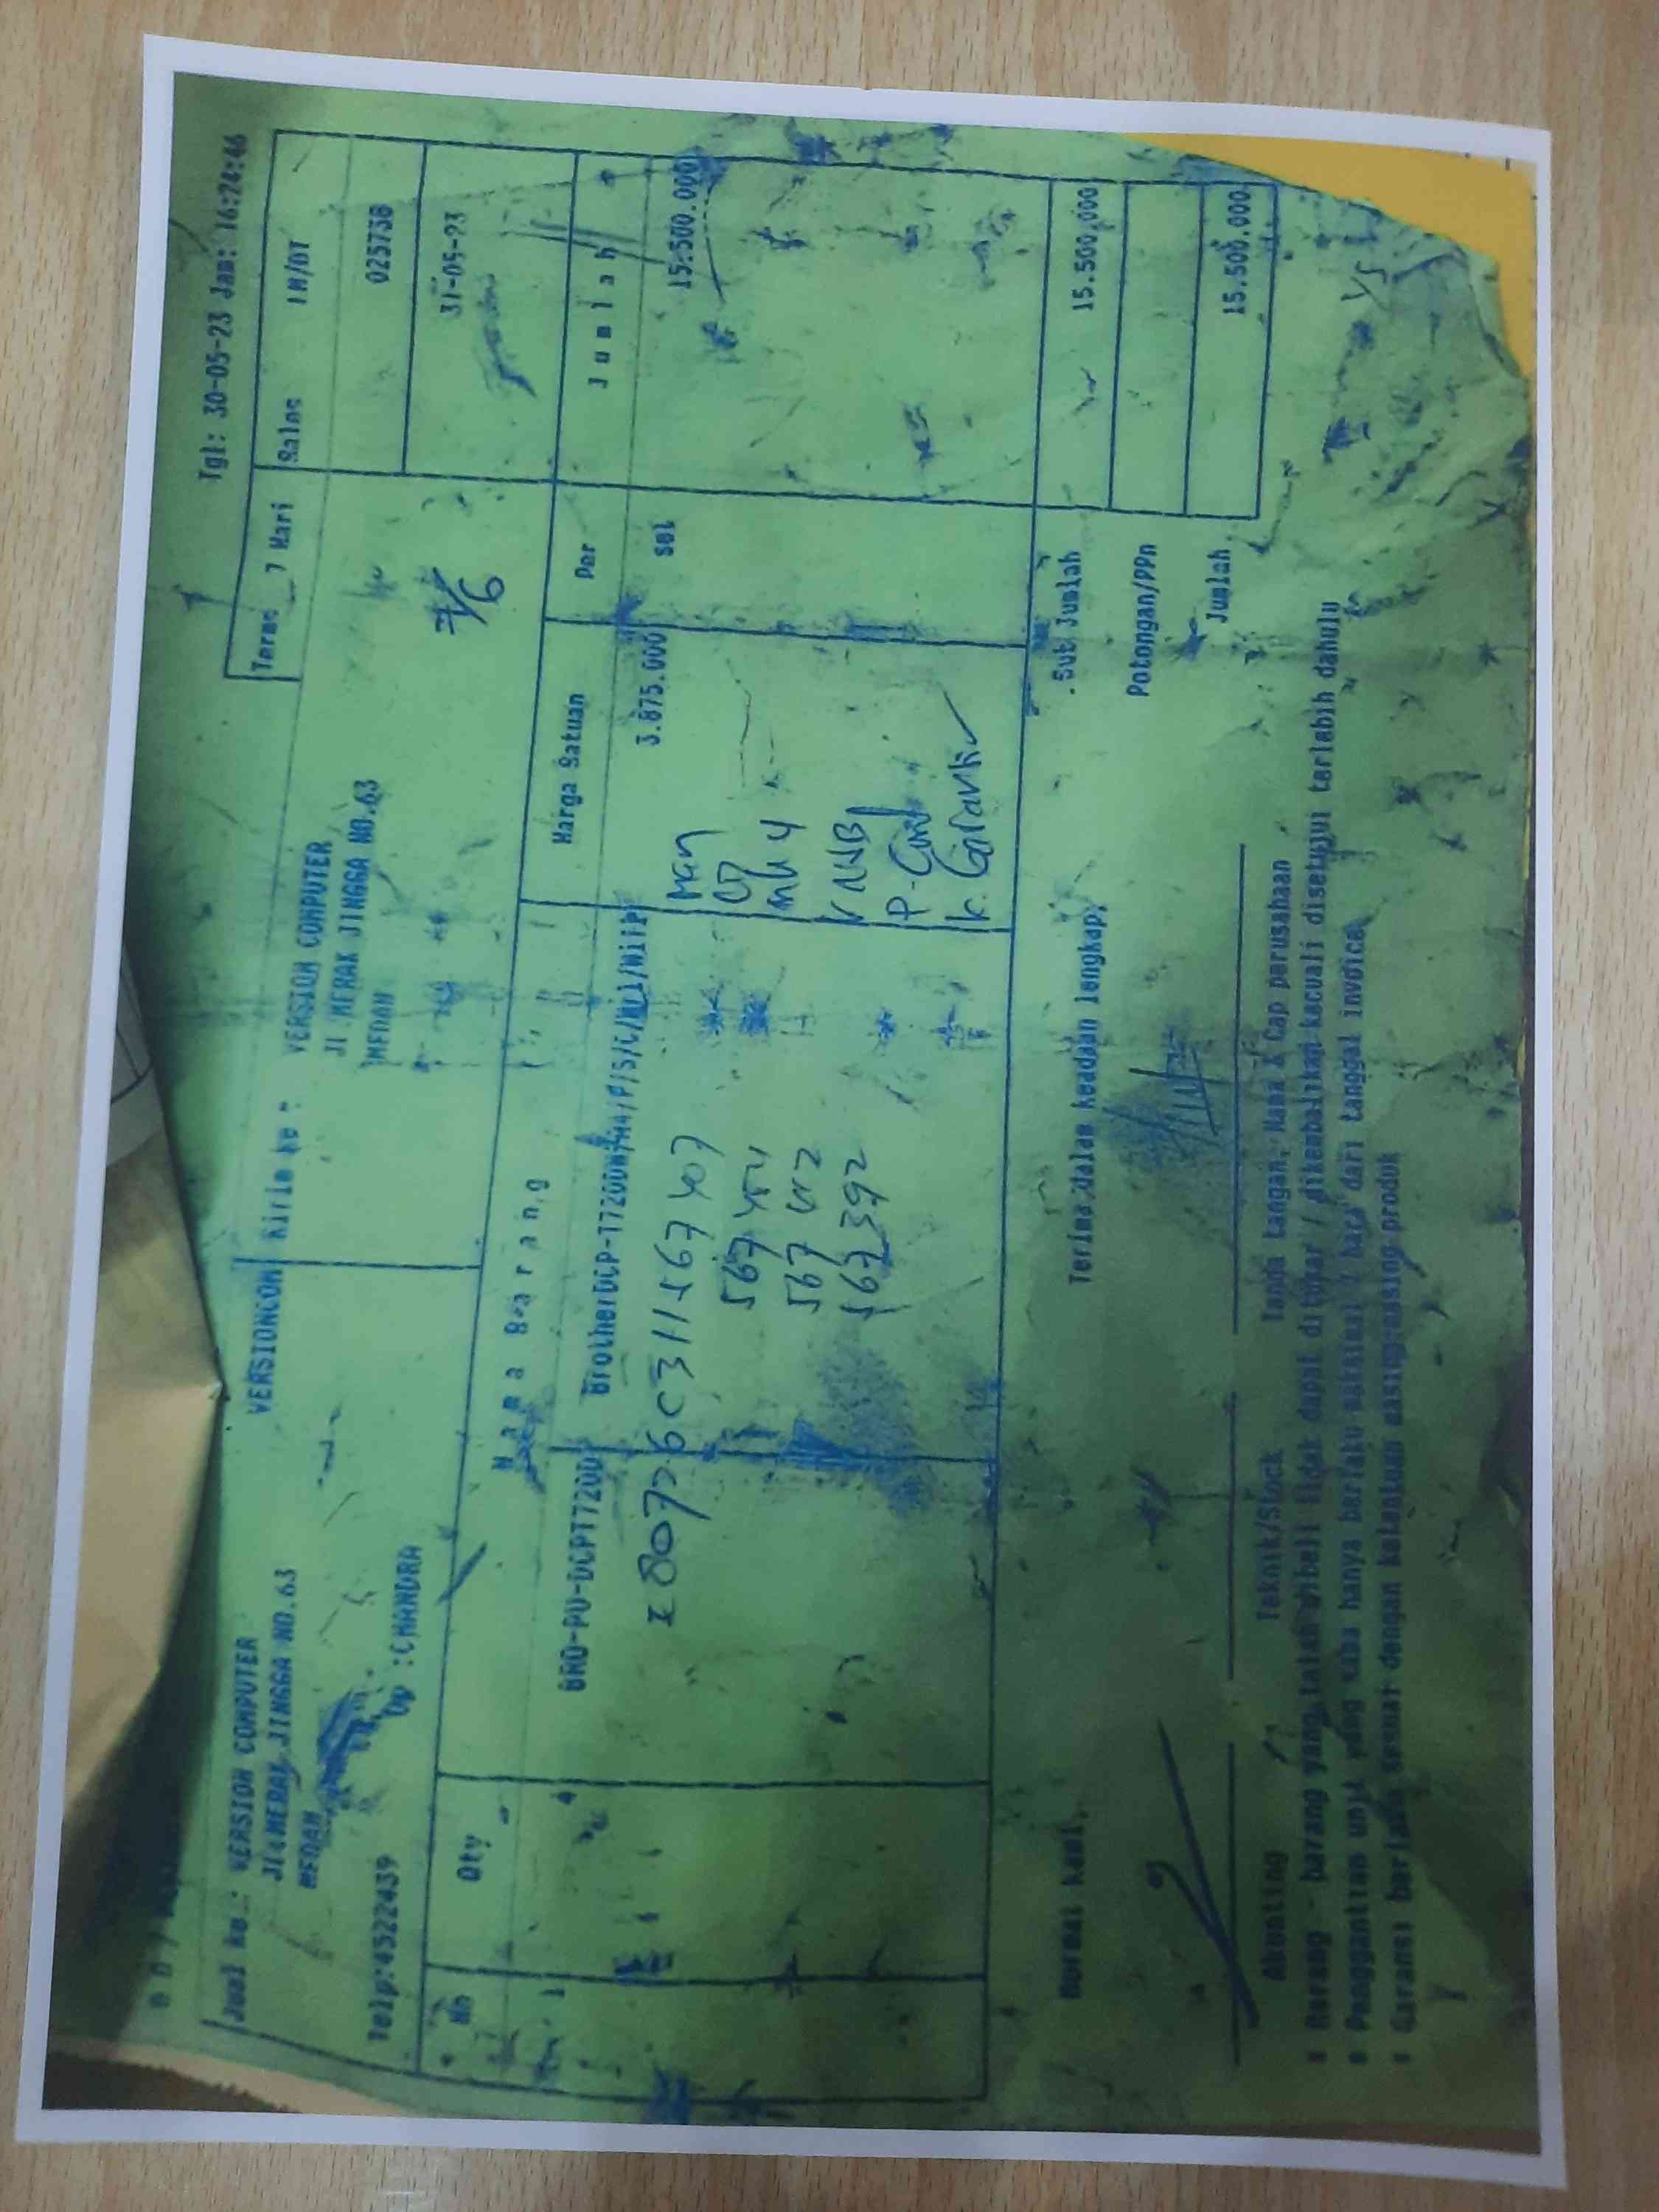 Tgl: 30-05-23 Jam: 16:24:46
Jual ke : VERSION COMPUTER
Jl. MERAK JINGGA NO.63
MEDAN
Telp:4522439
Up :CHANDRA
VERSIONCOM
Kirim ke :
VERSION COMPUTER
Jl MERAK JINGGA NO.63
MEDAN
Terms 7 Hari
Sales IM/DT
025738
31-05-23
No Qty Nama Barang Harga Satuan Per Jumlah
1 4 BRO-PU-DCPT720D Brother DCP-T720DW/A4/P/S/C/ 3.875.000 set 15.500.000
567
567
567 392
man
CD
P-Card
K. Garansi
Sub Jumlah 15.500.000
Potongan/PPn
Jumlah 15.500.000
Hormat kami,
Terima dalam keadaan lengkap,
Akunting Teknik/Stock Tanda tangan, Nama & Cap perusahaan
Barang - barang yang telah dibeli tidak dapat ditukar / dikembalikan kecuali disetujui terlebih dahulu
Penggantian unit yang hanya berlaku maksimal hari dari tanggal invoice
Garansi berlaku sesuai dengan ketentuan masing-masing produk